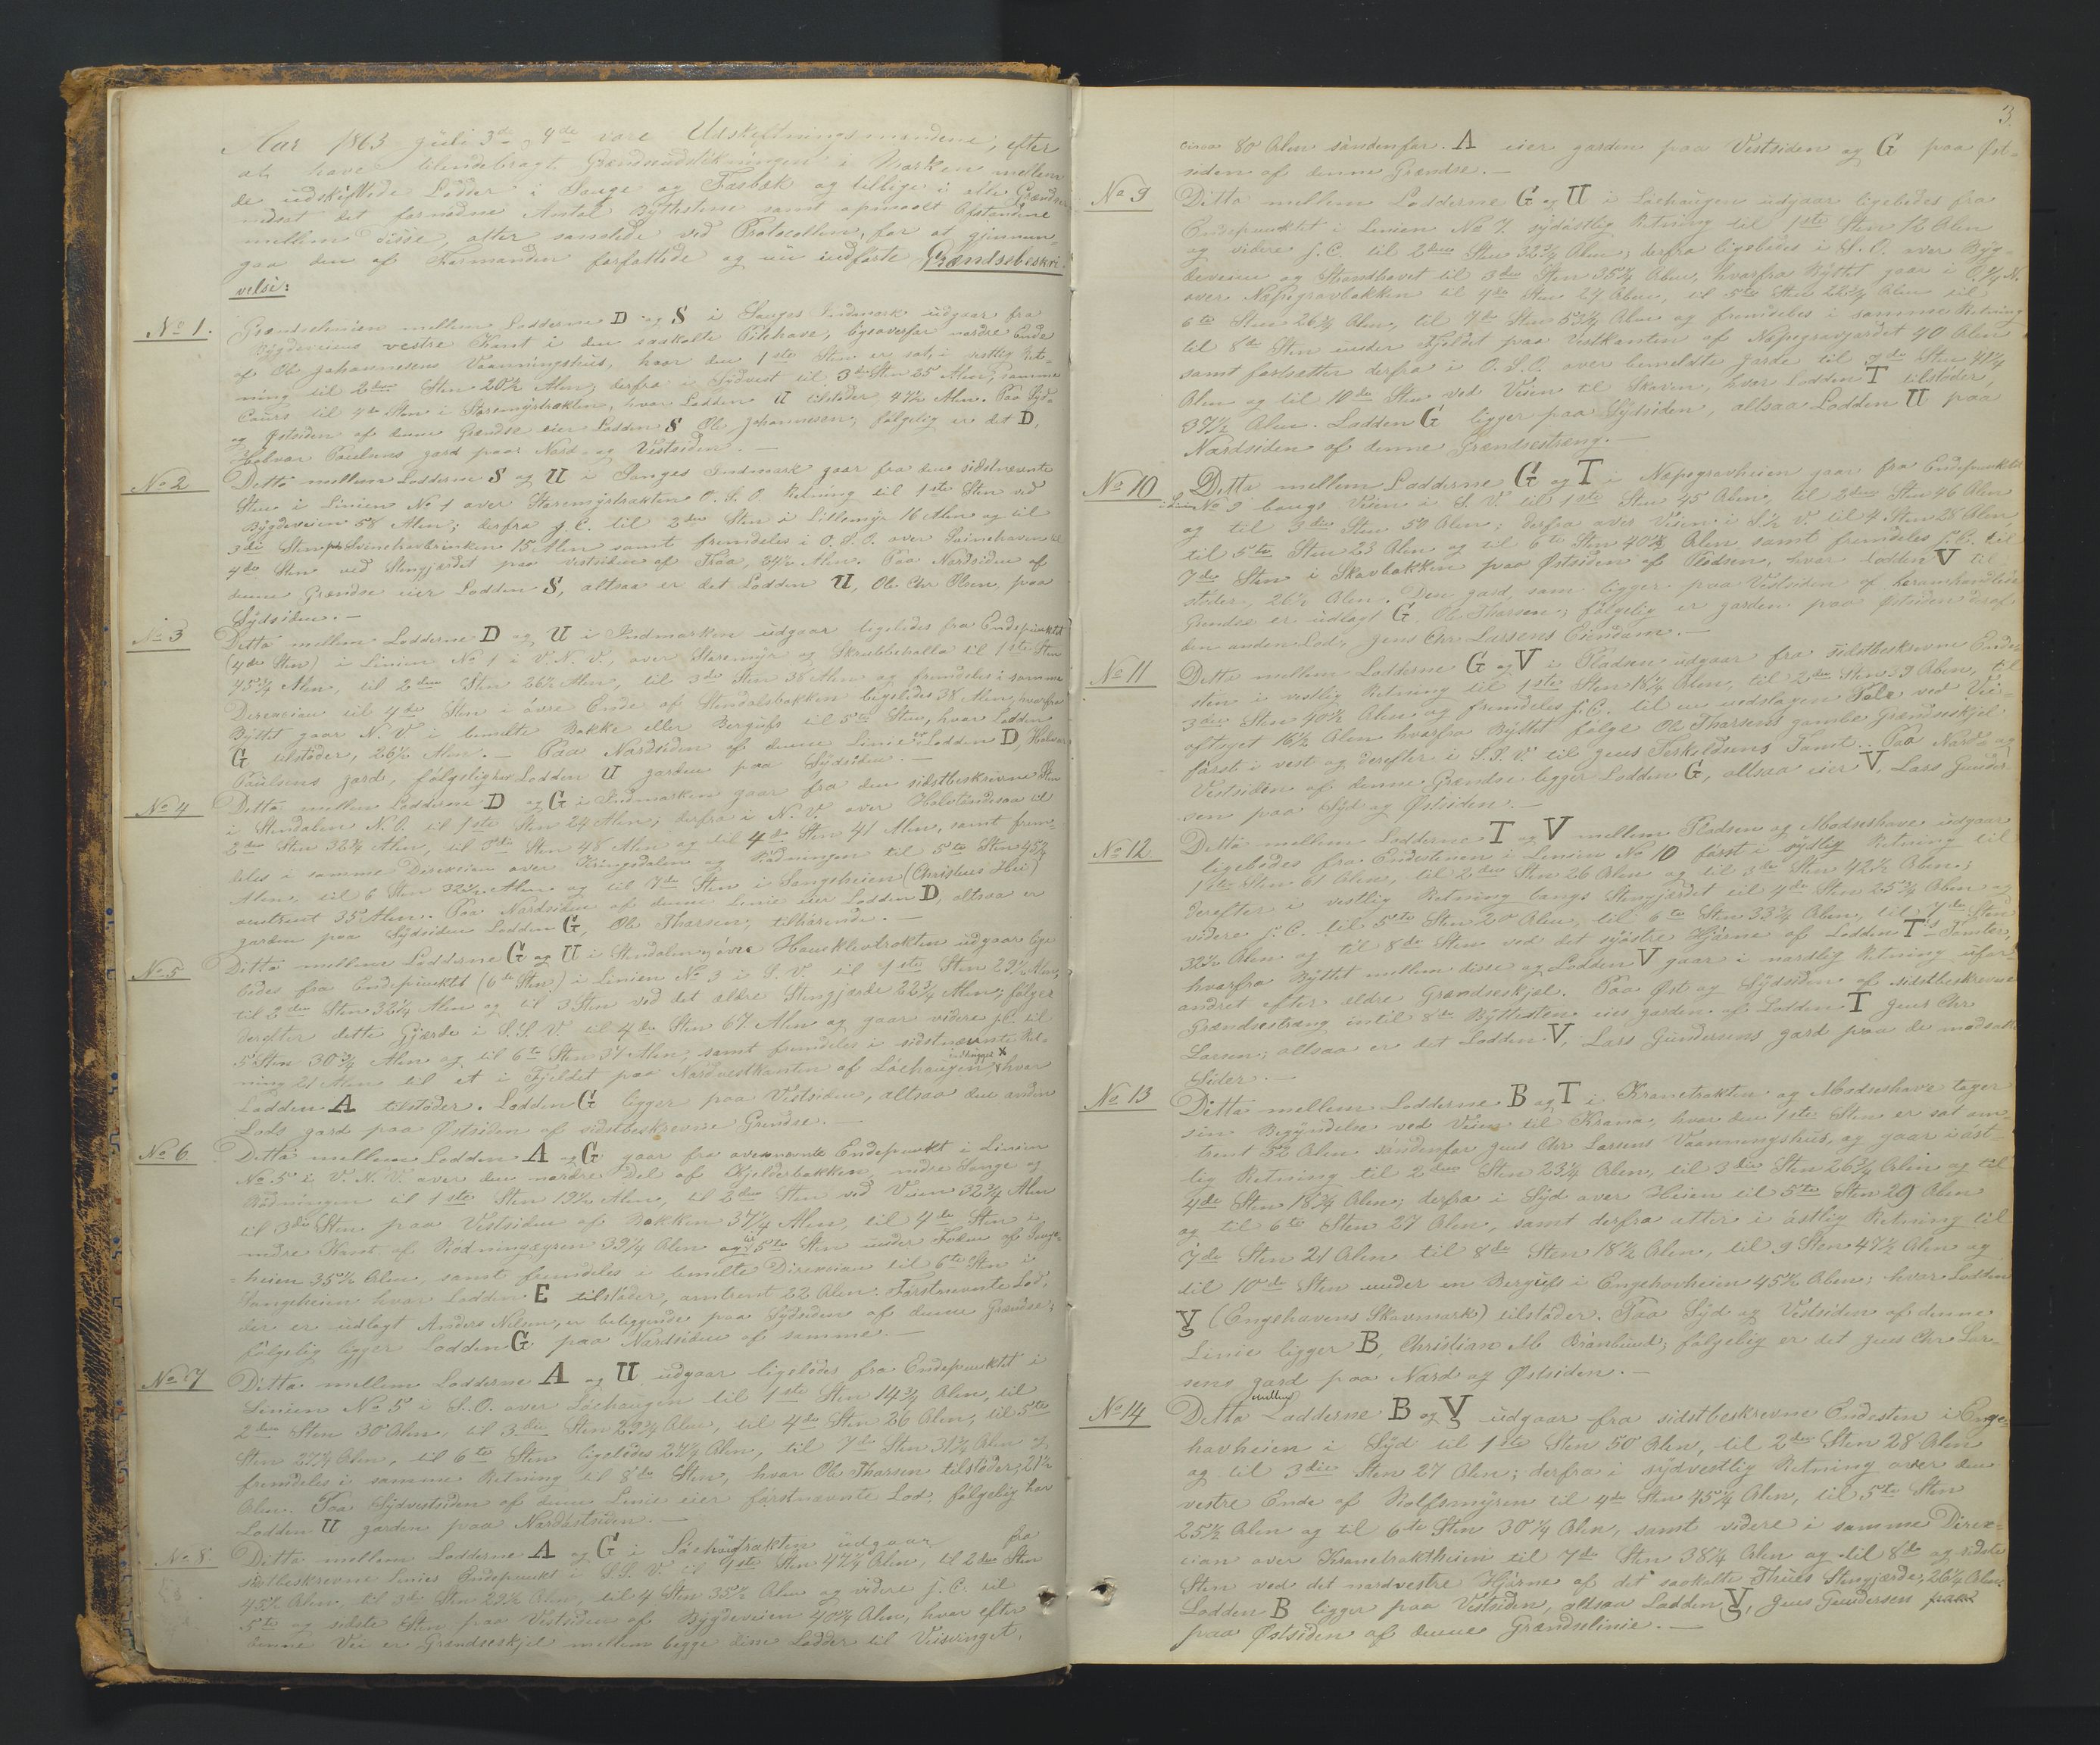 Aar 1863 Juli 3die og 4de vare Udskiftningsmændene, efter
at have tilendebragt Grændseudstikningen i Marken mellem
de udskiftede Lodder i Sauge og Fasbæk og tillige i alle Grændser
nedsat det fornødne Antal Byttestene samt opmaalt Afstandene
mellem disse, atter samlede ved Protocollen, for at gjennem-
gaa den af Formanden forfattede og nu indførte Grændsebeskri-
velse:
No 1. Grændselinien mellem Lodderne D og S i Sauges Indmark udgaar fra
Bygdeveiens vestre Kant i den saakalte Pilehave, ligeoverfor nordre Ende
af Ole Johannesens Vaaningshuus, hvor den 1ste Sten er sat, i vestlig Ret-
ning til 2den Sten 20½ Alen; derfra i Sydvest til 3die Sten 25 Alen, samme
Cours til 4de Sten i Staremyrtrakten, hvor Lodden U tilstøder 47½ Alen. Paa Syd-
og Østsiden af denne Grændse eier Lodden S Ole Johannesen, følgelig er det D,
Halvor Paulsens gaard paa Nord- og Vestsiden. —
No 2 Ditto mellem Lodderne S og U i Sauges Indmark gaar fra den sidstnævnte
Sten i Linien No 1 over Staremyrtrakten O. S. O. Retning til 1ste Sten ved
Bygdeveien 58 Alen; derfra f. C. til 2den Sten i Lillemyr 16 Alen og til
3die Sten paa Svinehavebrinken 15 Alen samt fremdeles i O. S. O. over Svinehaven til
4de Sten ved Stengjærdet paa vestsiden af Traa, 24½ Alen. Paa Nordsiden af
denne Grændse eier Lodden S, altsaa er det Lodden U, Ole Chr Olsen, paa
Sydsiden. —
No 3 Ditto mellem Lodderne D og U i Indmarken udgaar ligeledes fra Endepunktet
(4de Sten) i Linien No 1 i V. N. V., over Staremyr og Skrubbehalla til 1ste Sten
45¼ Alen, til 2den Sten 26½ Alen, til 3die Sten 38 Alen og fremdeles i samme
Direction til 4de Sten i øvre Ende af Stendalsbakken ligeledes 38 Alen, hvorfra
Byttet gaar N. V i bemelte Bakke eller Bergufs til 5te Sten, hvor Lodden
G tilstøder, 26½ Alen. — Paa Nordsiden af denne Linie er Lodden D, Halvor
Paulsens gaard, følgelig har Lodden U gaarden paa Sydsiden. —
No 4 Ditto mellem Lodderne D og G i Indmarken gaar fra den sidstbeskrevne Sten
i Stendalen N. O. til 1ste Sten 24 Alen; derfra i N. V. over Halvtindesaa til
2den Sten 32¼ Alen, til 3die Sten 48 Alen og til 4de Sten 41 Alen, samt frem-
deles i samme Direction over Kringsdalen og Rødningen til 5te Sten 45½
Alen, til 6 Sten 32½ Alen og til 7de Sten i Saugeheien (Christines Hei)
omtrent 35 Alen. Paa Nordsiden af denne Linie eier Lodden D, altsaa er
gaarden paa Sydsiden Lodden G, Ole Thorsen, tilhørende. —
No 5 Ditto mellem Lodderne G og U i Stendalen og øvre Haukklevtrakten udgaar lige-
ledes fra Endepunktet (6te Sten) i Linien No 3 i S. V. til 1ste Sten 29½ Alen,
til 2den Sten 32¼ Alen og til 3 Sten ved det ældre Stengjærde 22¾ Alen; følger
derefter dette Gjærde i S. S. V. til 4de Sten 67 Alen og gaar videre f. C. til
5 Sten 30¾ Alen og til 6te Sten 37 Alen, samt fremdeles i sidstnævnte Ret-
ning 21 Alen til et i Fjeldet paa Nordvestkanten af Løchaugen indhugget x hvor
Lodden A tilstøder. Lodden G ligger paa Vestsiden, altsaa den anden
Lods gaard paa Østsiden af sidstbeskrevne Grændse. —
No 6 Ditto mellem Lodden A og G gaar fra ovennævnte Endepunkt i Linien
No 5 i V. N. V. over den nordre Del af Kjeldsbakken, nedre Sauge og
Rødningen til 1ste Sten 19½ Alen, til 2den Sten ved Veien 32¾ Alen
til 3die Sten paa Vestsiden af Bakken 37¼ Alen, til 4de Sten i
nedre Kant af Rødningsageren 39¼ Alen og til 5te Sten under Foden af Sauge-
heien 35½ Alen, samt fremdeles i bemelte Direction til 6te Sten i
Saugeheien hvor Lodden E tilstøder, omtrent 22 Alen. Førstnævnte Lod,
der er udlagt Anders Nilsen, er beliggende paa Sydsiden af denne Grændse;
følgelig ligger Lodden G paa Nordsiden af samme. —
No 7 Ditto mellem Lodderne A og U udgaar ligeledes fra Endepunktet i
Linien No 5 i S. O. over Løchaugen til 1ste Sten 14¾ Alen, til
2den Sten 30 Alen, til 3die Sten 29¼ Alen, til 4de Sten 26 Alen, til 5te
Sten 27¼ Alen, til 6te Sten ligeledes 27¼ Alen, til 7de Sten 31¾ Alen og
fremdeles i samme Retning til 8de Sten, hvor Ole Thorsen tilstøder, 21½
Alen. Paa Sydvestsiden af denne Linie eier førstnævnte Lod, følgelig har
Lodden U gaarden paa Nordøstsiden. —
No 8. Ditto mellem Lodderne A og G i Løchaugtrakten udgaar fra
sidstbeskrevne Linies Endepunkt i S. S. V. til 1ste Sten 47½ Alen, til 2den Sten
45½ Alen, til 3die Sten 29½ Alen, til 4 Sten 35½ Alen og videre f. C. til
5te og sidste Sten paa Vestsiden af Bygdeveien 40¼ Alen, hvor efter
denne Vei er Grændseskjel mellem begge disse Lodder til Veisvinget,
3.
circa 80 Alen søndenfor. A eier gaarden paa Vestsiden og G paa Øst-
siden af denne Grændse. —
No 9 Ditto mellem Lodderne G og U i Løchaugen udgaar ligeledes fra
Endepunktet i Linien No 7. sydøstlig Retning til 1ste Sten 12 Alen
og videre f. C. til 2den Sten 32¾ Alen; derfra ligeledes i S. O. over Byg-
deveien og Strandhavet til 3die Sten 35¼ Alen, hvorfra Byttet gaar i O. ¼ N.
over Næpegravbakken til 4de Sten 27 Alen, til 5te Sten 22¾ Alen til
6te Sten 26¾ Alen, til 7de Sten 53¼ Alen og fremdeles i samme Retning
til 8de Sten under Fjeldet paa Vestkanten af Næpegravjordet 40 Alen
samt fortsætter derfra i O. S. O. over bemeldte Jorde til 9de Sten 41¼
Alen og til 10de Sten ved Veien til Skoven, hvor Lodden T tilstøder,
37½ Alen. Lodden G ligger paa Sydsiden, altsaa Lodden U paa
Nordsiden af denne Grændsestræng. —
No 10 Ditto mellem Lodderne G og T i Næpegravheien gaar fra Endepunktet
i Linien No 9 langs Veien i S. V. til 1ste Sten 45 Alen, til 2den Sten 46 Alen
og til 3die Sten 50 Alen; derfra over Veien i S. ½ V. til 4 Sten 28 Alen,
til 5te Sten 23 Alen og til 6te Sten 40½ Alen samt fremdeles f. C. til
7de Sten i Skavbakken paa Østsiden af Pladsen, hvor Lodden V til-
støder, 26½ Alen. Den gaard, som ligger paa Vestsiden af heromhandlede
Grændse er udlagt G, Ole Thorsen; følgelig er gaarden paa Østsiden deraf
den anden Lod, Jens Chr Larsens Eiendom. —
No 11 Ditto mellem Lodderne G og V i Pladsen udgaar fra sidstbeskrevne Ende-
sten i vestlig Retning til 1ste Sten 18¼ Alen, til 2den Sten 39 Alen, til
3die Sten 40½ Alen, og fremdeles f. C. til en nedslagen Pæle ved Vei-
oftaget 16½ Alen hvorfra Byttet følge Ole Thorsens gamle Grændseskjel
først i vest og derefter i S. S. V. til Jens Terkeldsens Tomt. Paa Nord og
Vestsiden af denne Grændse ligger Lodden G, altsaa eier V, Lars Gunder-
sen paa Syd og Østsiden. —
No 12 Ditto mellem Lodderne T og V mellem Pladsen og Modseshave udgaar
ligeledes fra Endestenen i Linien No 10 først i sydlig Retning til
1ste Sten 61 Alen, til 2den Sten 26 Alen og til 3die Sten 42½ Alen;
derefter i vestlig Retning langs Stengjærdet til 4de Sten 25¾ Alen og
videre f. C. til 5te Sten 20 Alen, til 6te Sten 33¾ Alen, til 7de Sten
32½ Alen og til 8de Sten ved det syøstre Hjørne af Lodden T's Tomter,
hvorfra Byttet mellem disse og Lodden V gaar i nordlig Retning ufor-
andret efter ældre Grændseskjel. Paa Øst og Sydsiden af sidstbeskrevne
Grændsestræng indtil 8de Byttesten eies gaarden af Lodden T Jens Chr
Larsen; altsaa er det Lodden V, Lars Gundersens gaard paa de modsatte
Sider. —
No 13 Ditto mellem Lodderne B og T i Kranetrakten og Modseshave tager
sin Begyndelse ved Veien til Krana, hvor den 1ste Sten er sat om-
trent 52 Alen søndenfor Jens Chr Larsens Vaaningshus, og gaar i øst-
lig Retning til 2den Sten 23¼ Alen, til 3die Sten 26¾ Alen og til
4de Sten 18¾ Alen; derfra i Syd over Heien til 5te Sten 29 Alen
og til 6te Sten 27 Alen, samt derfra atter i østlig Retning til
7de Sten 21 Alen til 8de Sten 18½ Alen, til 9 Sten 47½ Alen og
til 10de Sten under en Bergufs i Engehavheien 45½ Alen; hvor Lodden
V (Engehavens Skovmark) tilstøder. Paa Syd og Vestsiden af denne
Linie ligger B, Christian M. Brønlund; følgelig er det Jens Chr Lar-
sens gaard paa Nord og Østsiden. —
No 14 Ditto mellem Lodderne B og V udgaar fra sidstbeskrevne Endesten i Enge-
havheien i Syd til 1ste Sten 50 Alen, til 2den Sten 28 Alen
og til 3die Sten 27 Alen; derfra i sydvestlig Retning over den
vestre Ende af Rolfsmyren til 4de Sten 45¼ Alen, til 5te Sten
25½ Alen og til 6te Sten 30¼ Alen, samt videre i samme Direc-
tion over Kranetraktheien til 7de Sten 38¼ Alen og til 8de og sidste
Sten ved det nordvestre Hjørne af det saakalte Thues Stengjærde, 26¼ Alen.
Lodden B ligger paa Vestsiden, altsaa Lodden V, Jens Gundersen paa
paa Østsiden af denne Grændselinie. —